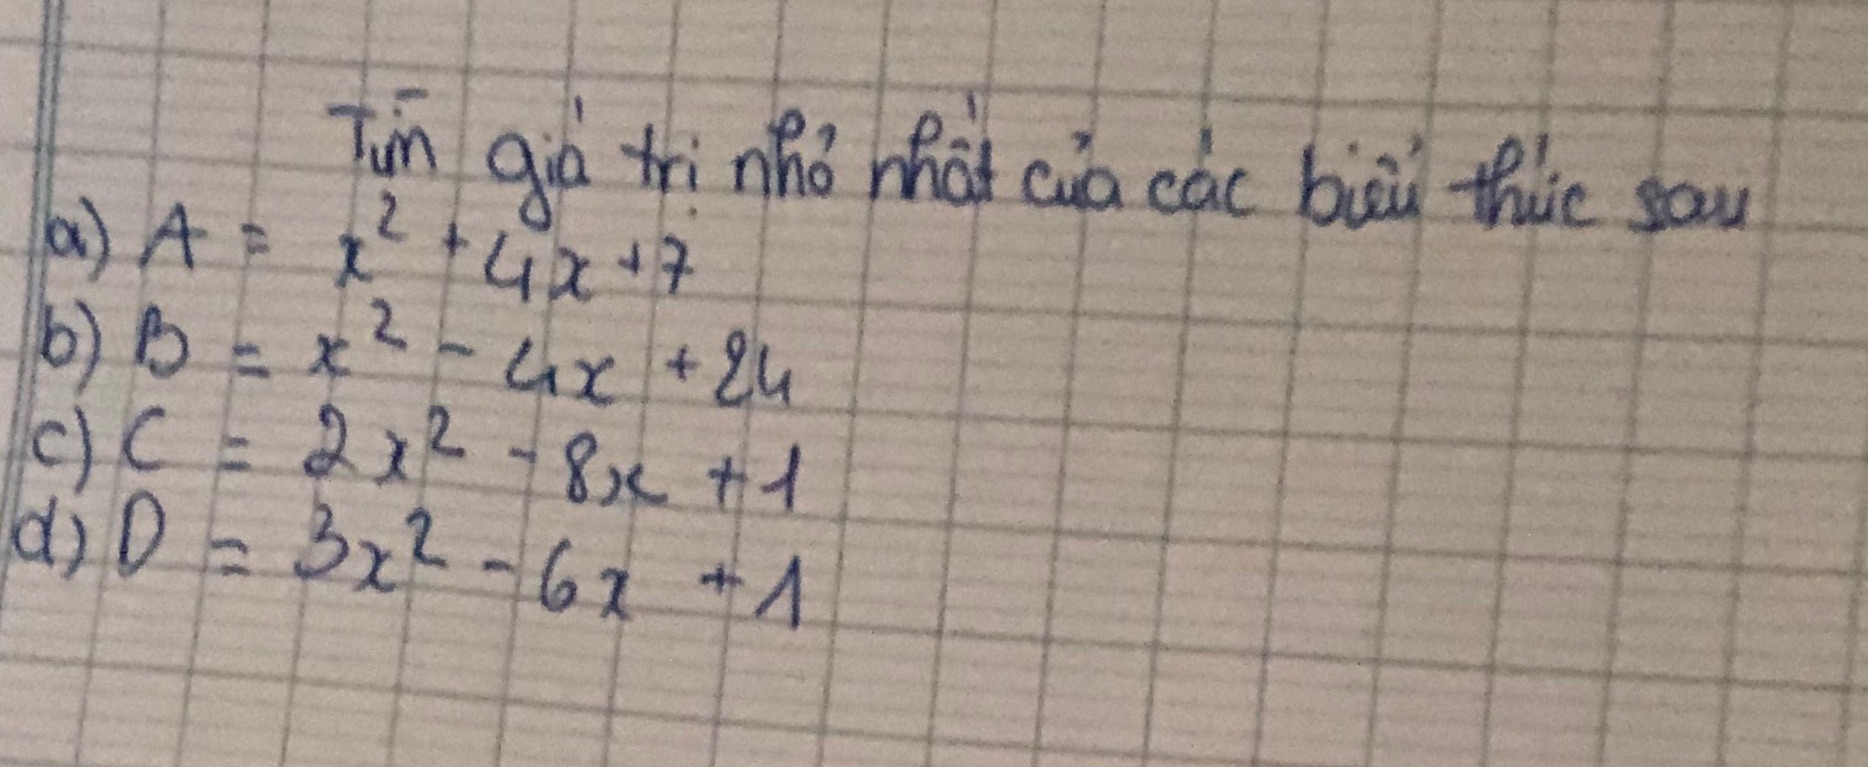 Tìm giá trị nhỏ nhất của các biểu thức sau
a) A = x² + 4x + 7
b) B = x² - 4x + 24
c) C = 2x² - 8x + 1
d) D = 3x² - 6x + 1